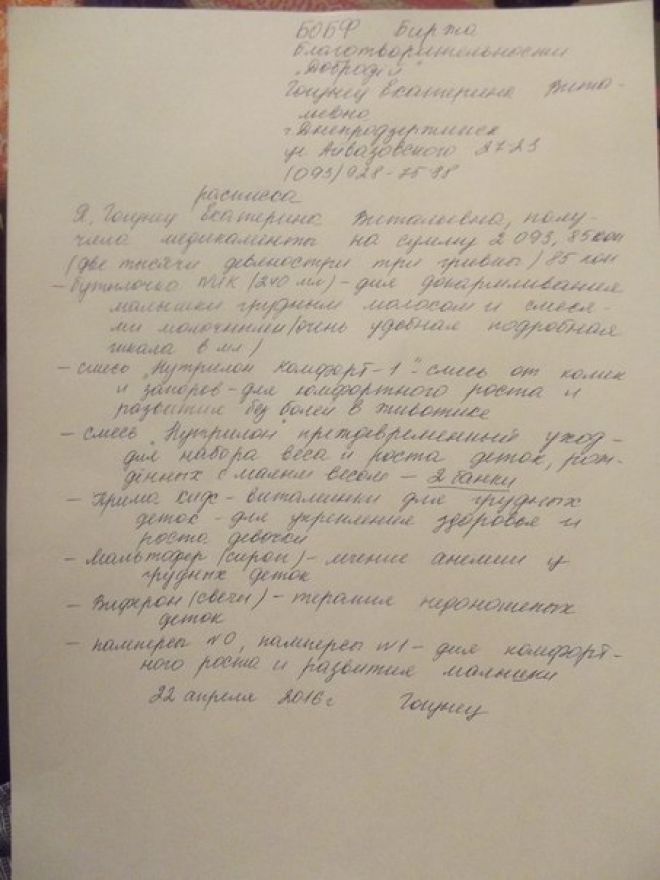 БОБФ Биржа
благотворительности
"Добродій"
Гоцунец Екатерина Вита-
льевна
г. Днепродзержинск
ул. Айвазовского 27-23
(093) 928-75-98
расписка
Я, Гоцунец Екатерина Витальевна, полу-
чила медикаменты на сумму 2 093, 85 коп
(две тысячи девяностри три гривны) 85 коп
- бутылочка (240 мл) - для докармливания
малышки грудным молоком и смеся-
ми молочными (очень удобная подробная
шкала в мл)
- смесь "Нутрилон Комфорт-1" - смесь от колик
и запоров - для комфортного роста и
развития без болей в животике
- смесь "Нутрилон" преждевременный уход -
для набора веса и роста деток, рож-
дённых с малым весом - 2 банки
- Прима Кидс - витаминки для грудных
деток - для укрепления здоровья и
роста девочки
- Мальтофер (сироп) - лечение анемии у
грудных деток
- Виферон (свечи) - терапия недоношеных
деток
- памперсы №0, памперсы №1 - для комфорт-
ного роста и развития малышки
22 апреля 2016 г Гоцунец